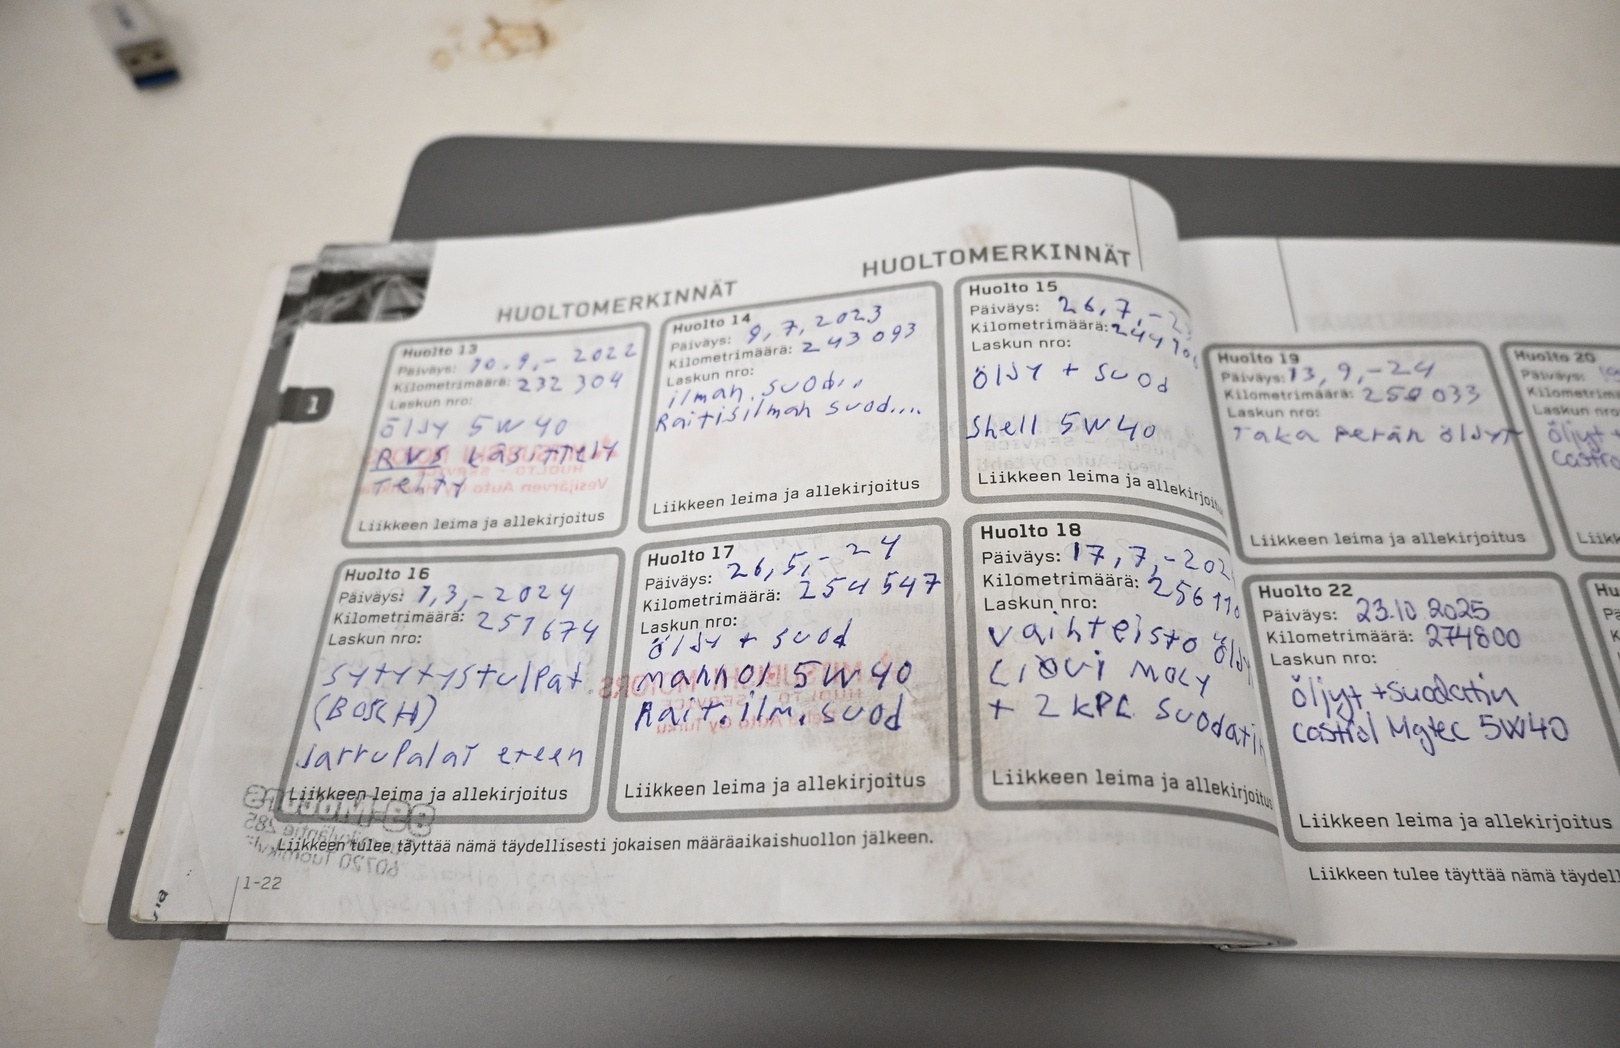 HUOLTOMERKINNÄT
HUOLTOMERKINNÄT
Huolto 13
Päiväys: 10.9,- 2022
Kilometrimäärä: 232 304
Laskun nro:
öljy 5W40
RVS käsittely
Tehty
Liikkeen leima ja allekirjoitus
Huolto 14
Päiväys: 9,7,2023
Kilometrimäärä: 243 093
Laskun nro:
ilman.suod..
Raitisilman suod....
Liikkeen leima ja allekirjoitus
Huolto 15
Päiväys: 26,7,-2
Kilometrimäärä: 244
Laskun nro:
öljy + suod
Shell 5W40
Liikkeen leima ja allekirjoit
Huolto 16
Päiväys: 1,3,-2024
Kilometrimäärä: 251674
Laskun nro:
sytytystulpat
(BOSCH)
Jarrupalat eteen
Liikkeen leima ja allekirjoitus
Huolto 17
Päiväys: 26,5,- 24
Kilometrimäärä: 254 547
Laskun nro:
öljy + suod
mannol 5W40
Rait.ilm.suod
Liikkeen leima ja allekirjoitus
Huolto 18
Päiväys: 17,7,-202
Kilometrimäärä: 256 110
Laskun nro:
vaihteisto öljy
Liqui Moly
+ 2 kpl suodatin
Liikkeen leima ja allekirjoitus
Huolto 19
Päiväys: 13,9,-24
Kilometrimäärä: 033
Laskun nro:
Taka perän öljyt
Liikkeen leima ja allekirjoitus
Huolto 20
Päiväys:
Kilometrimä
Laskun nro
öljyt +
castro
Liikk
Huolto 22
Päiväys: 23.10 2025
Kilometrimäärä: 274800
Laskun nro:
öljyt + suodatin
castrol Mgtec 5W40
Liikkeen leima ja allekirjoitus
Hu
Pä
Ki
La
Liikkeen tulee täyttää nämä täydellisesti jokaisen määräaikaishuollon jälkeen.
Liikkeen tulee täyttää nämä täydell
1-22
1